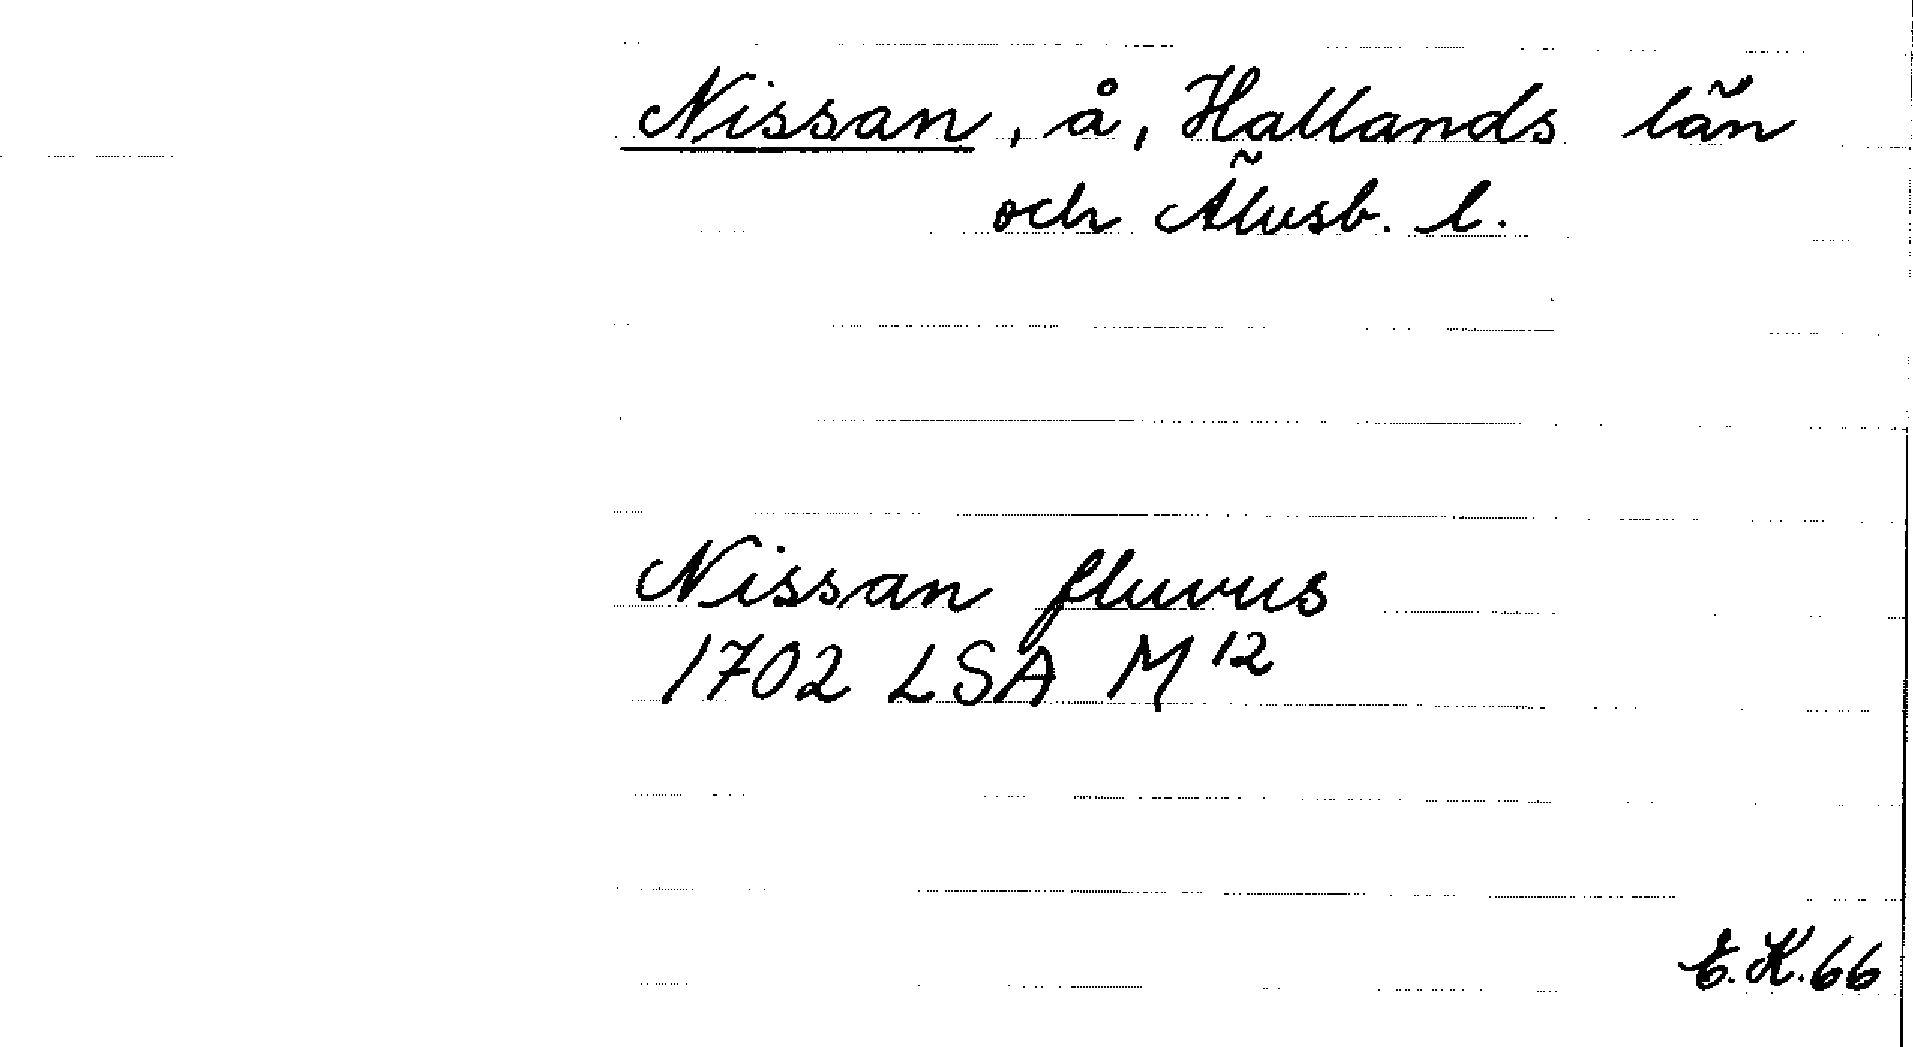 Nissan, å, Hallands län
och Älvsb. l.
Nissan fluvus
1702 LSA M 12
E.K.66